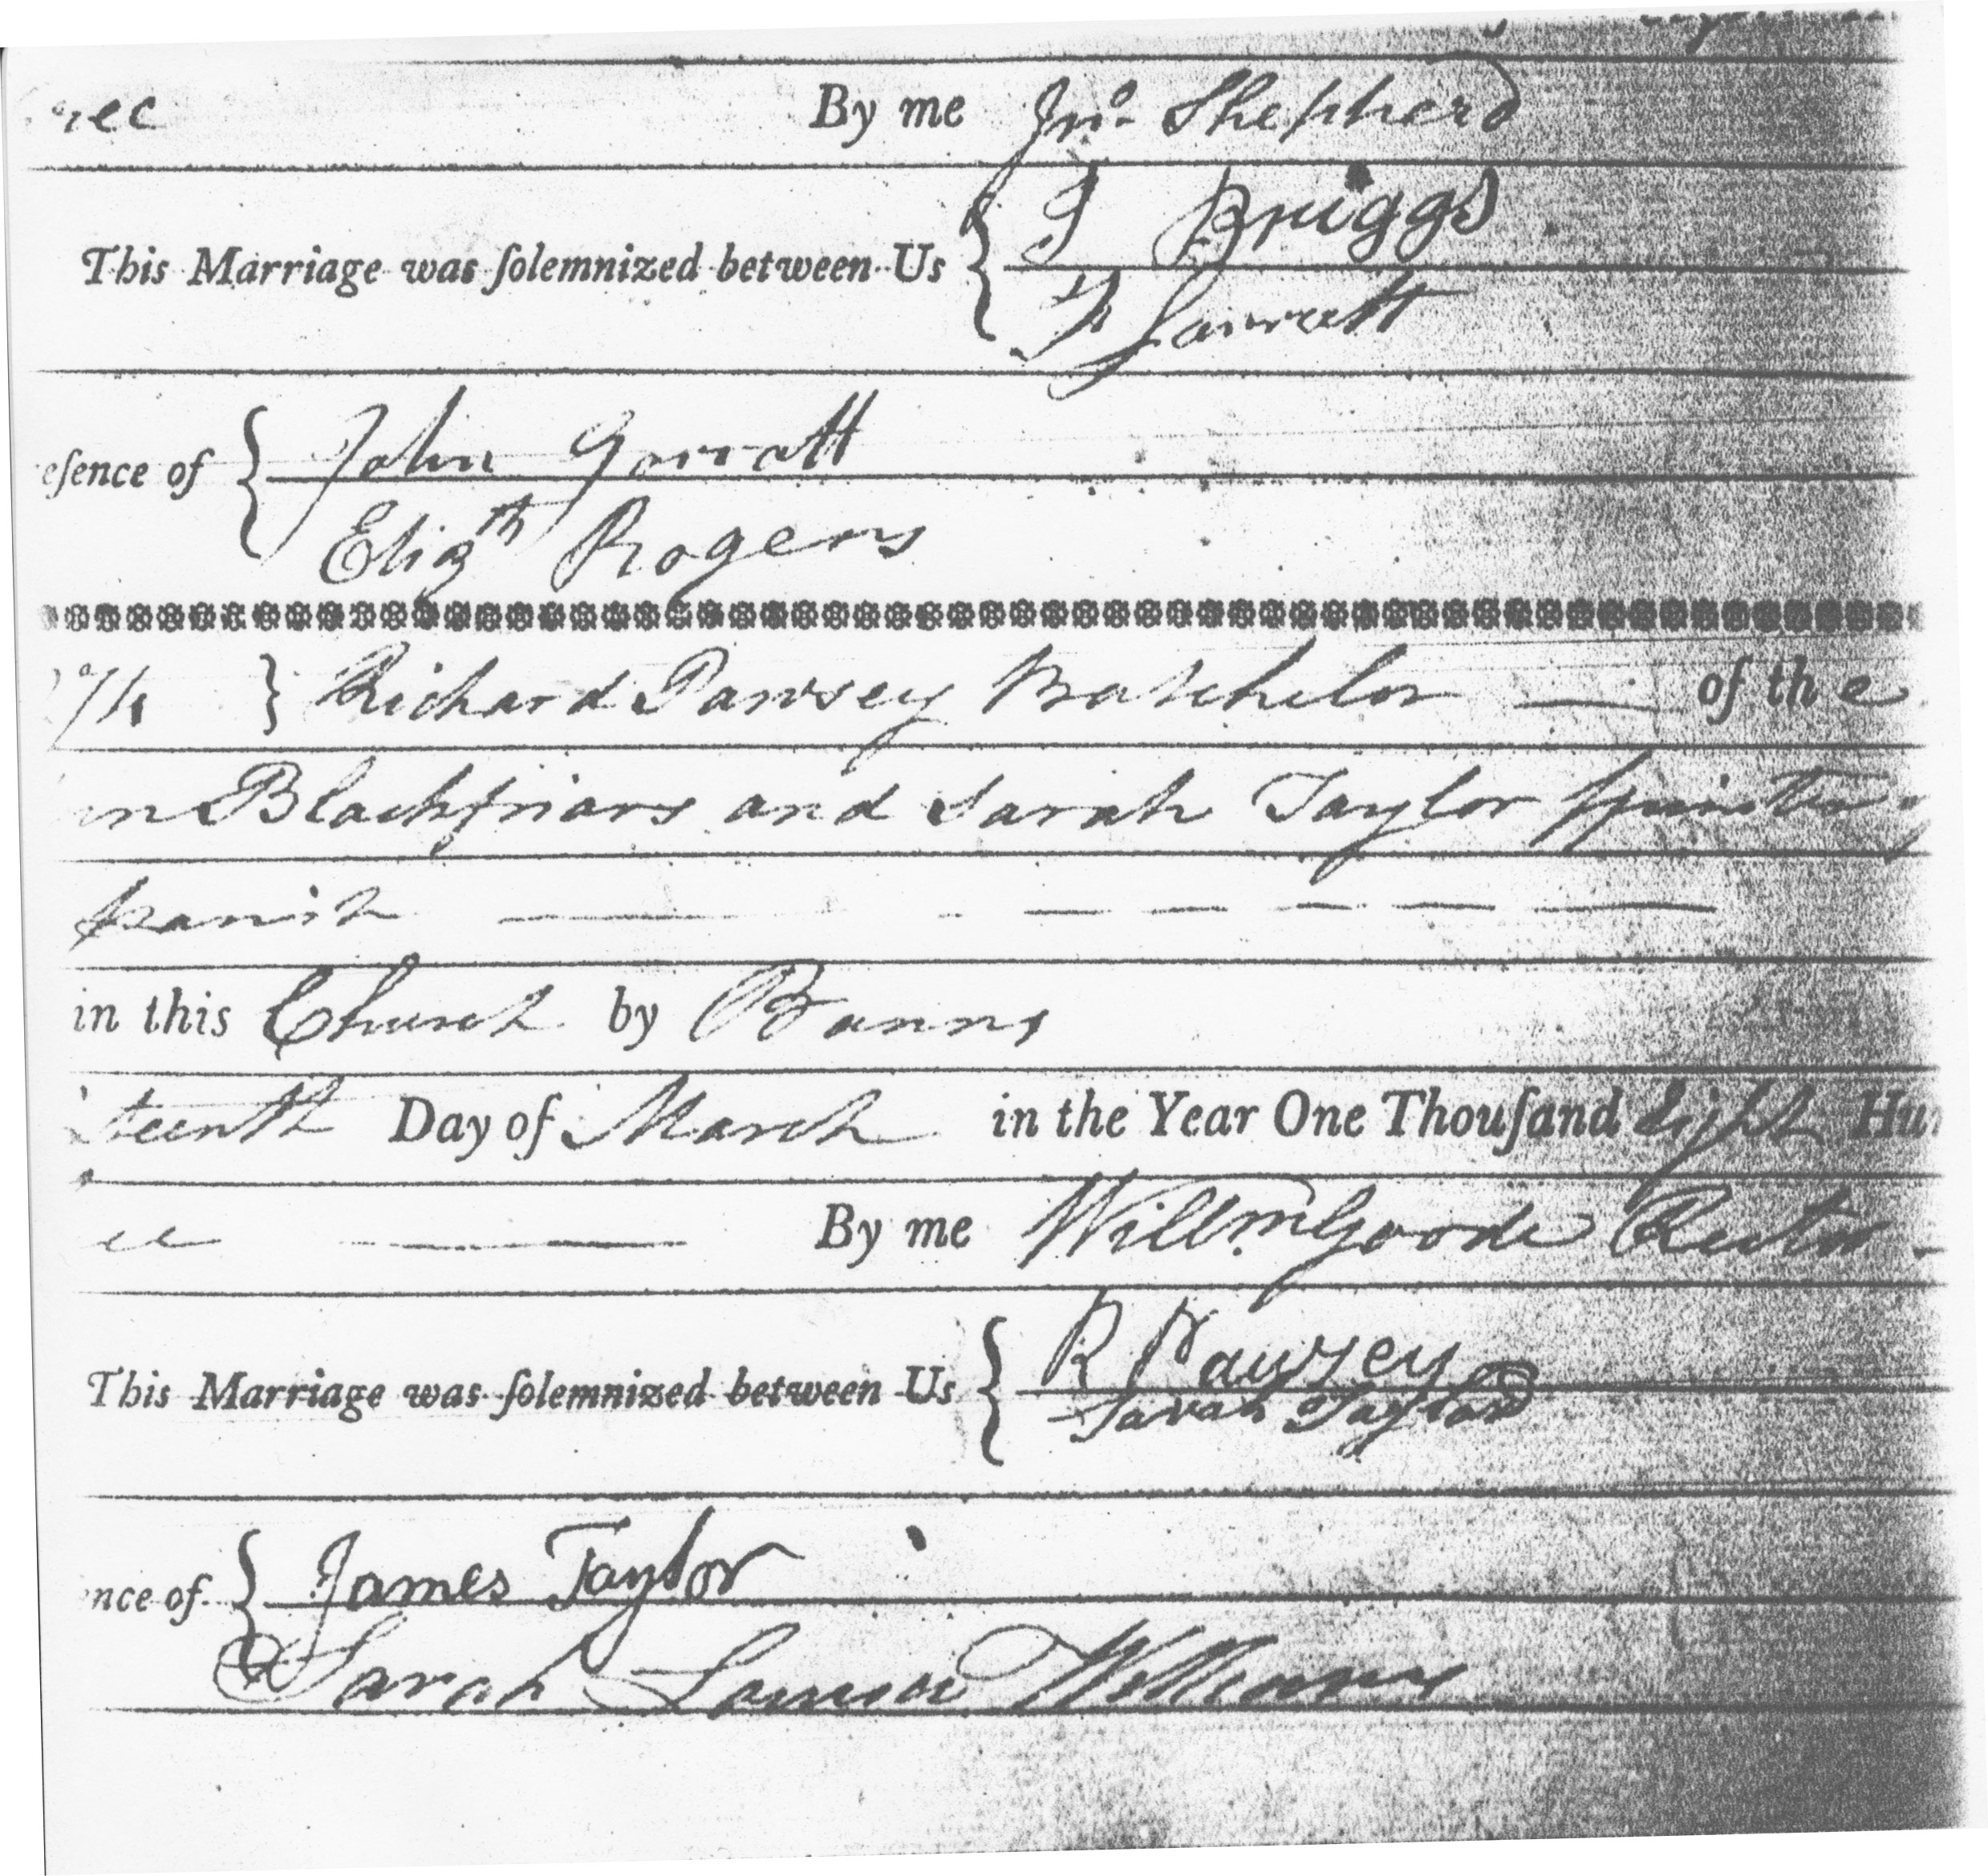 By me Jno. Shepherd
This Marriage was ſolemnized between Us { Briggs
Garratt
eſence of { John Garratt
Elizth Rogers
} Richard Pawsey Batchelor — of the
Blackfriars and Sarah Taylor Spinster of
parish
in this Church by Banns
teenth Day of March in the Year One Thouſand Eight Hu
ee — By me Willm Goode Rector
This Marriage was ſolemnized between Us { R Pawsey
Sarah Taylor
nce of { James Taylor
Sarah Williams